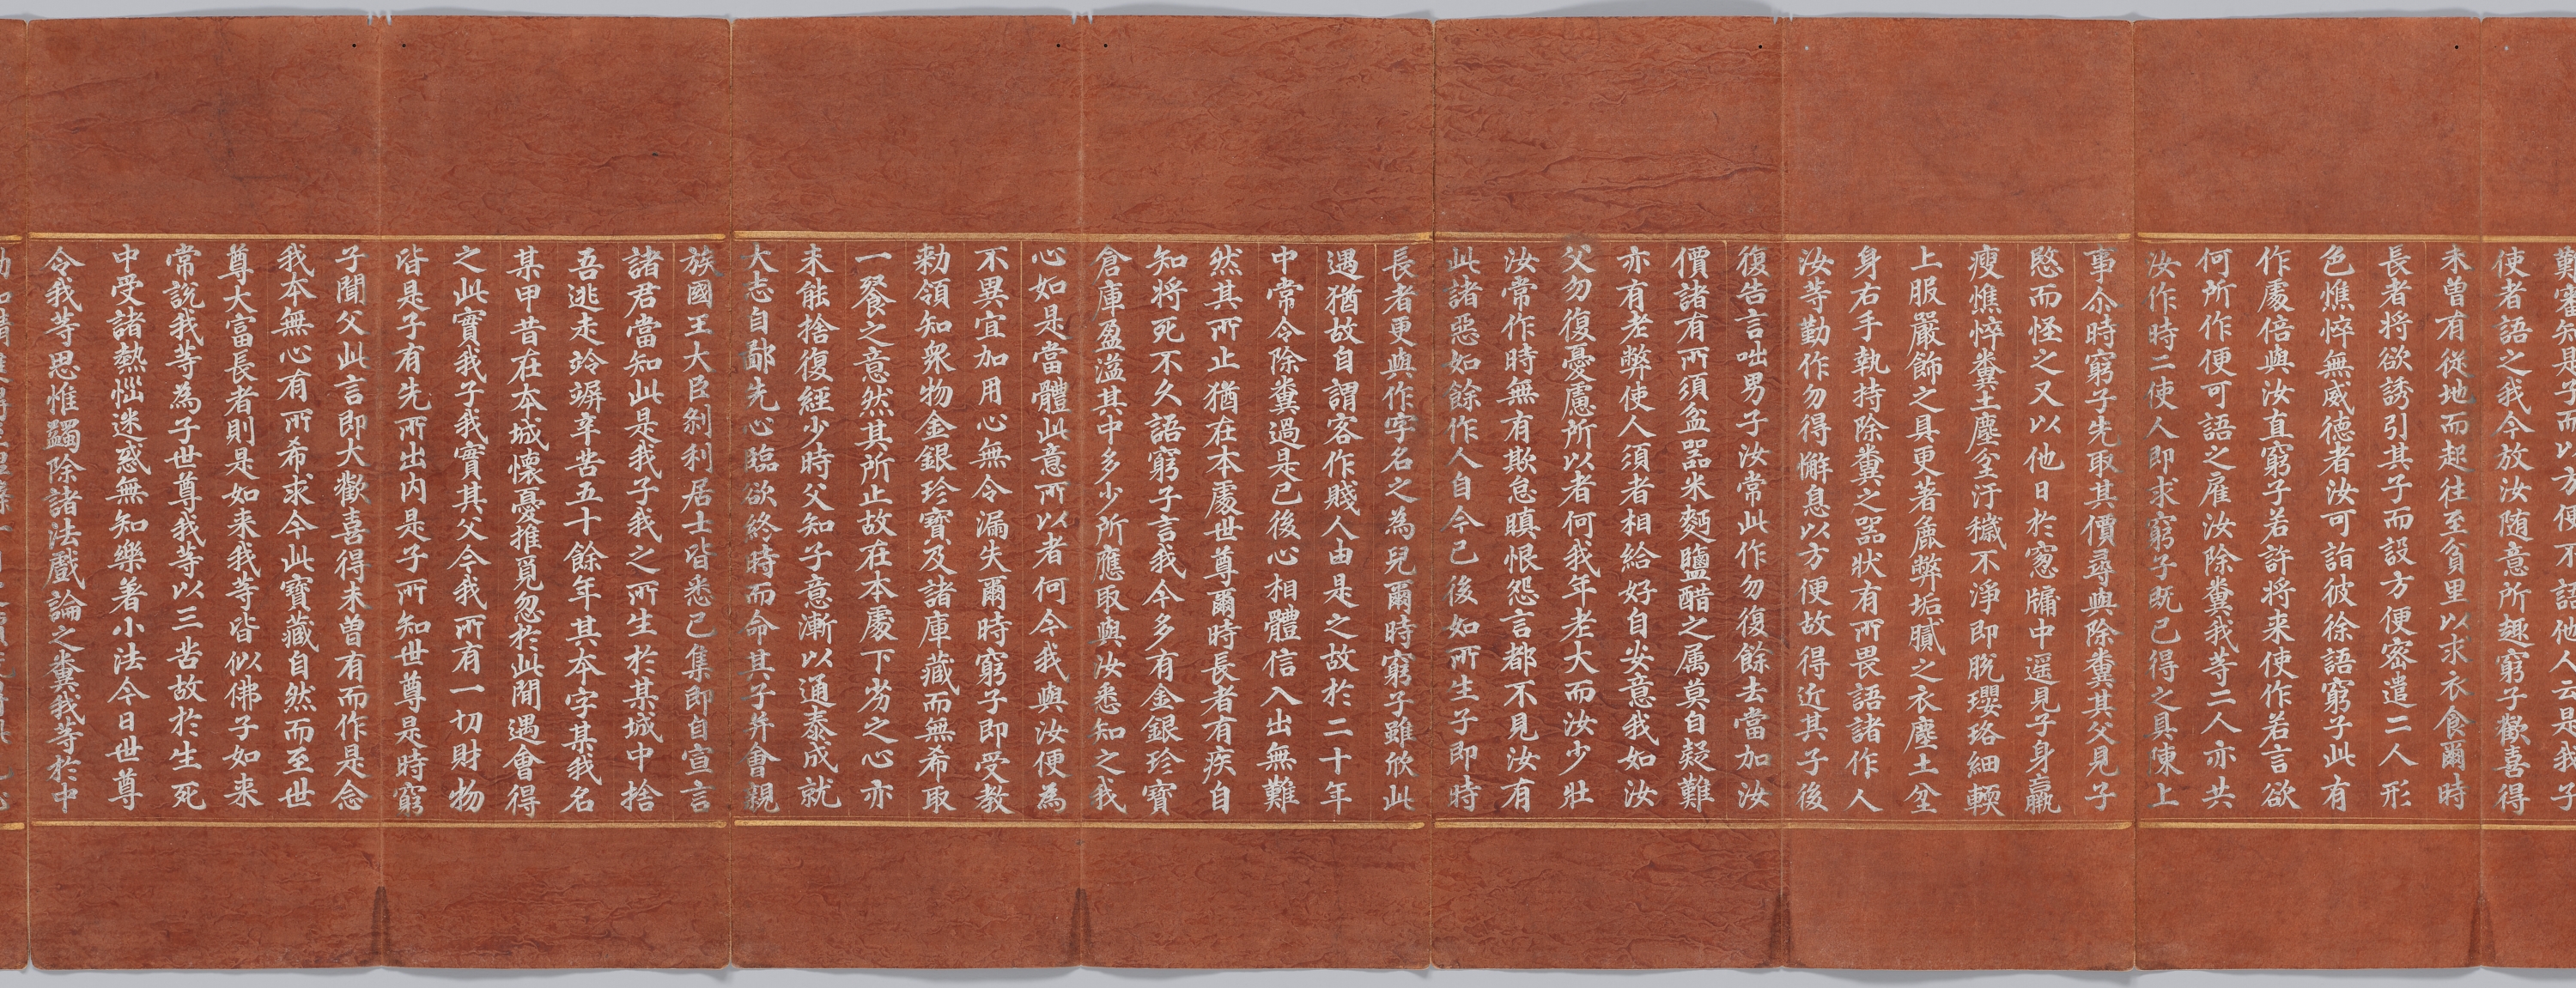 難審知是子而以方便不語他人云是我子
使者語之我今放汝随意所趣窮子歡喜得
未曾有從地而起往至貧里以求衣食爾時
長者将欲誘引其子而設方便密遣二人形
色憔悴無威德者汝可詣彼徐語窮子此有
作處倍與汝直窮子若許将来使作若言欲
何所作便可語之雇汝除糞我等二人亦共
汝作時二使人即求窮子既已得之具陳上
事尒時窮子先取其價尋與除糞其父見子
愍而怪之又以他日於窓牖中遥見子身羸
瘦憔悴糞土塵坌汙穢不淨即脫瓔珞細輭
上服嚴飾之具更著麁弊垢膩之衣塵土坌
身右手執持除糞之器狀有所畏語諸作人
汝等勤作勿得懈息以方便故得近其子後
復告言咄男子汝常此作勿復餘去當加汝
價諸有所須盆器米麪鹽醋之属莫自疑難
亦有老弊使人須者相給好自安意我如汝
父勿復憂慮所以者何我年老大而汝少壯
汝常作時無有欺怠瞋恨怨言都不見汝有
此諸惡如餘作人自今已後如所生子即時
長者更與作字名之為兒爾時窮子雖欣此
遇猶故自謂客作賤人由是之故於二十年
中常令除糞過是已後心相體信入出無難
然其所止猶在本處世尊爾時長者有疾自
知将死不久語窮子言我今多有金銀珍寶
倉庫盈溢其中多少所應取與汝悉知之我
心如是當體此意所以者何今我與汝便為
不異宜加用心無令漏失爾時窮子即受教
勑領知衆物金銀珍寶及諸庫藏而無希取
一飡之意然其所止故在本處下劣之心亦
未能捨復經少時父知子意漸以通泰成就
大志自鄙先心臨欲終時而命其子并會親
族國王大臣刹利居士皆悉已集即自宣言
諸君當知此是我子我之所生於某城中捨
吾逃走竛竮辛苦五十餘年其本字某我名
某甲昔在本城懐憂推覓忽於此間遇會得
之此實我子我實其父今我所有一切財物
皆是子有先所出内是子所知世尊是時窮
子聞父此言即大歡喜得未曾有而作是念
我本無心有所希求今此寶藏自然而至世
尊大富長者則是如来我等皆似佛子如来
常說我等為子世尊我等以三苦故於生死
中受諸熱惱迷惑無知樂著小法今日世尊
令我等思惟蠲除諸法戲論之糞我等於中